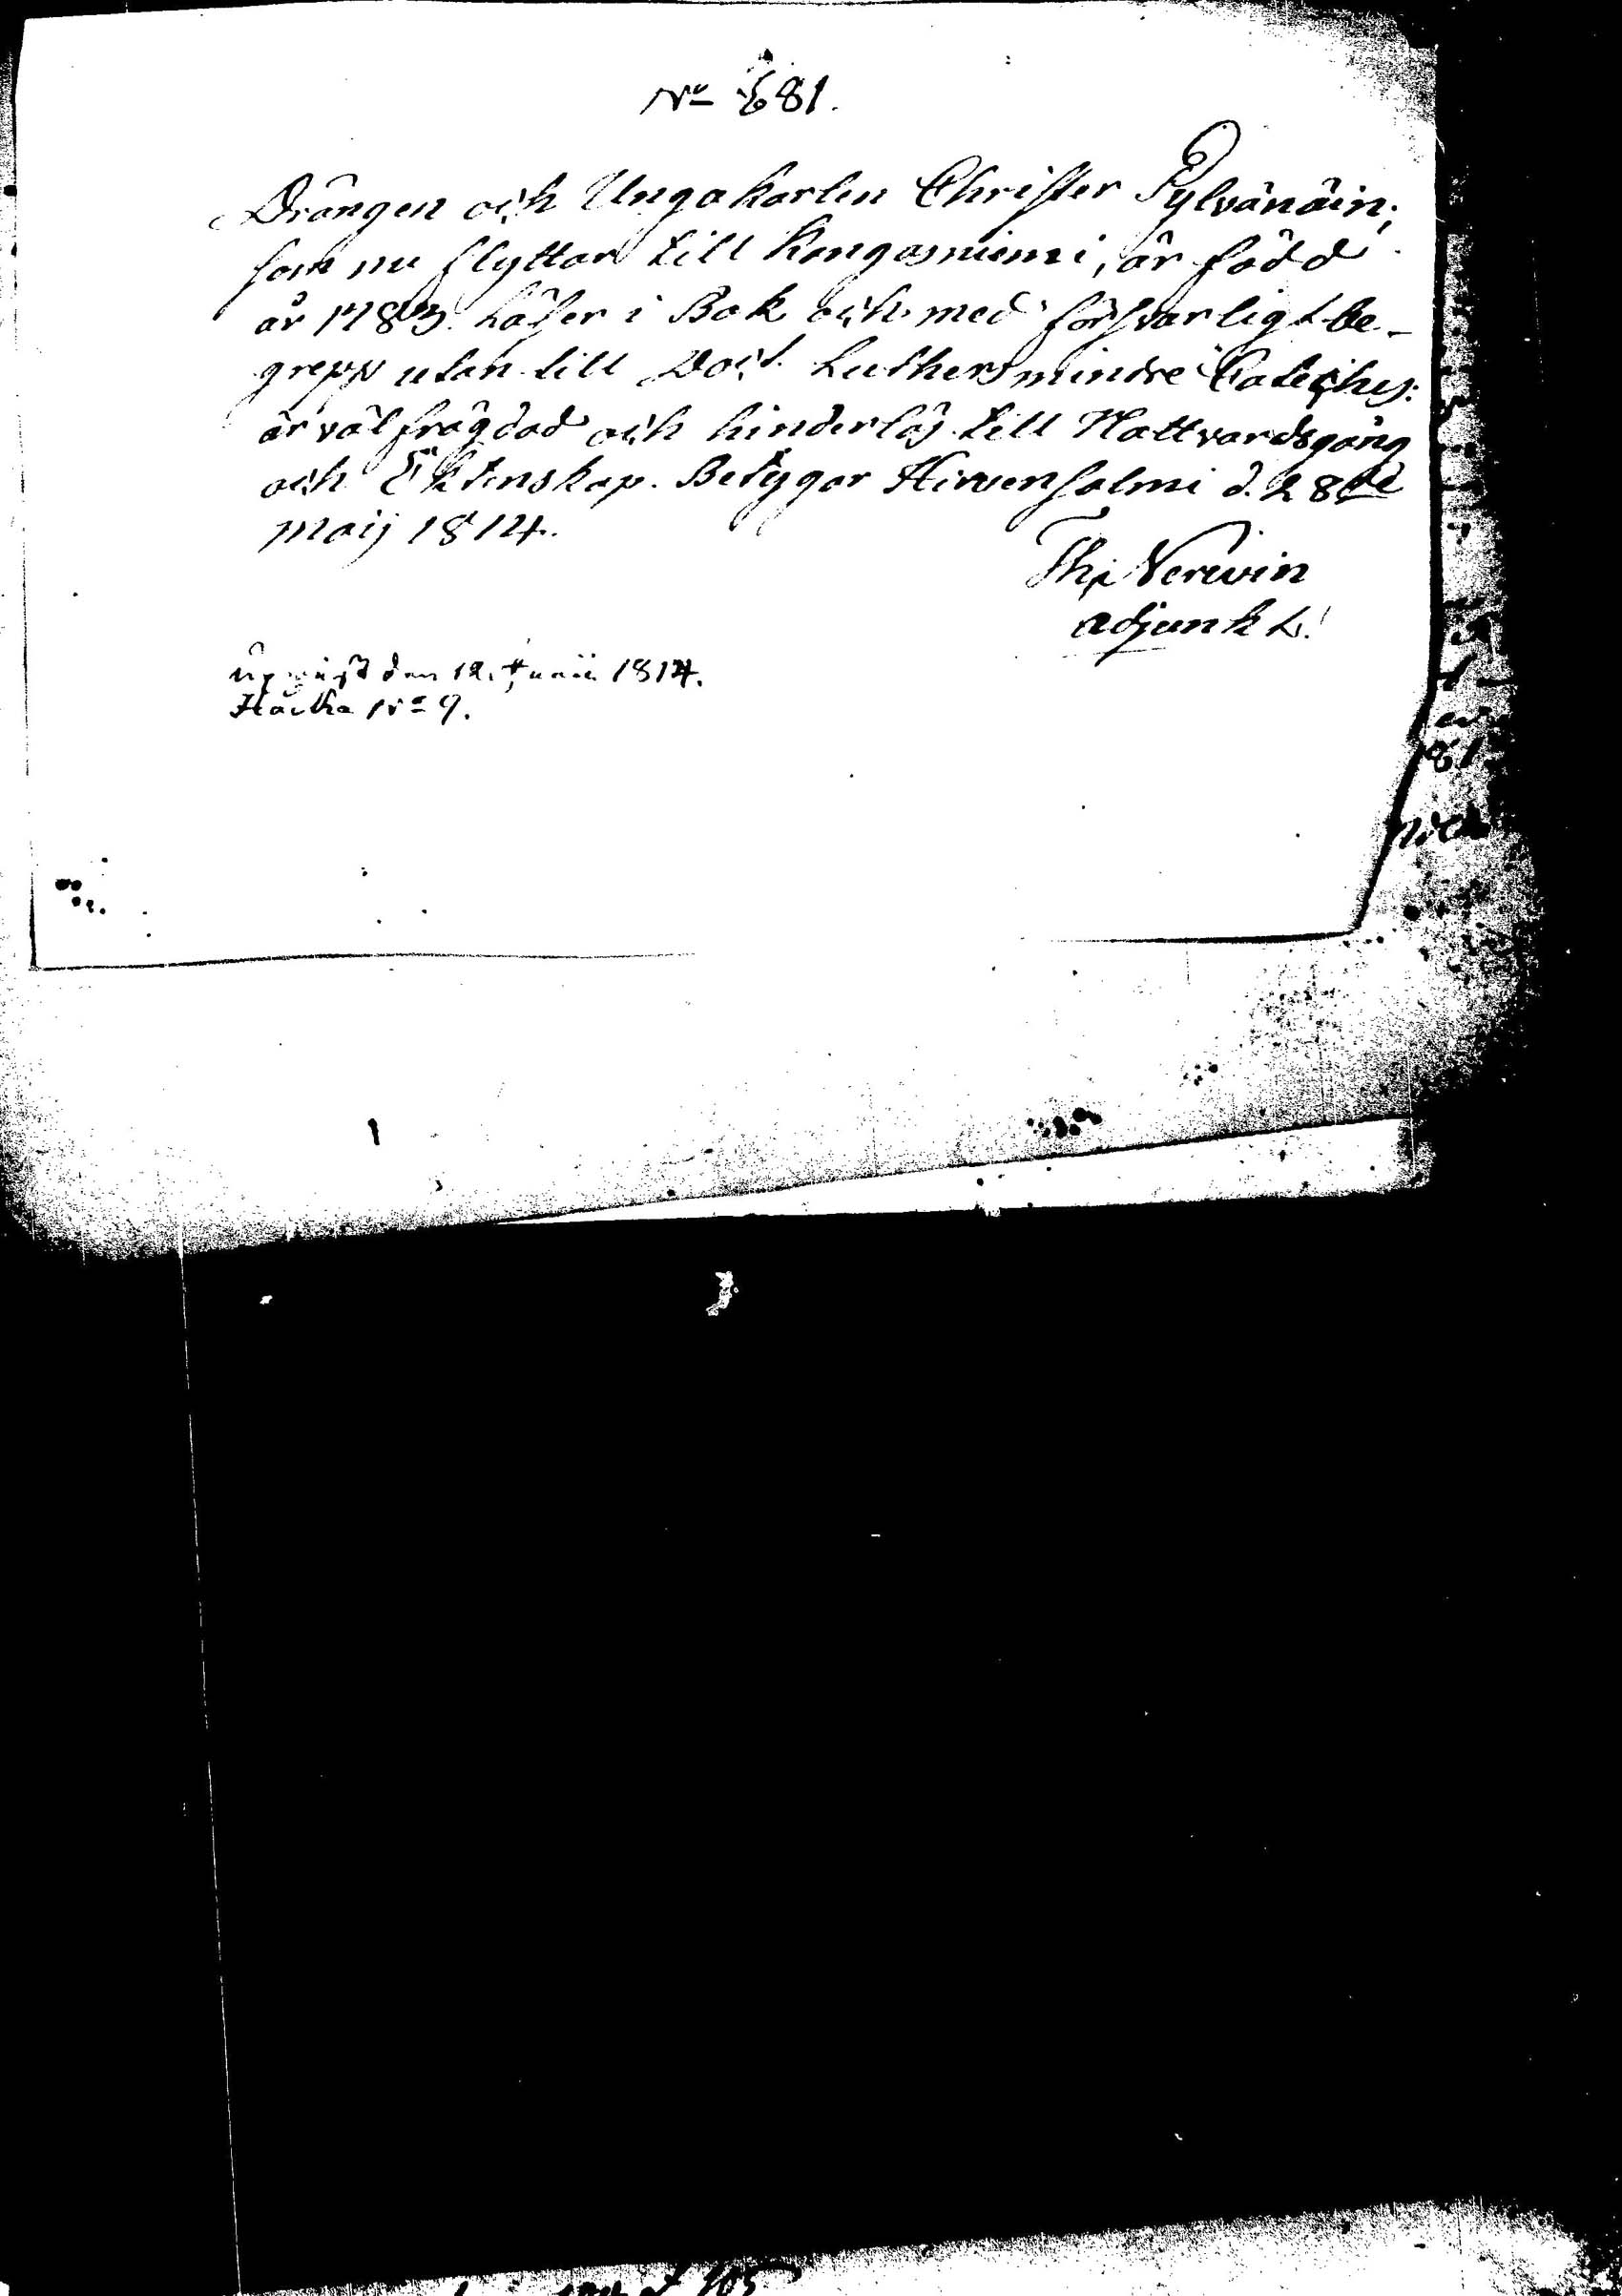 No 681.
Drängen och Unga karlen Christer Pylvänäin;
som nu flyttar till Kangasniemi, är född
år 1783. Läser i Bok och med försvarligt be-
grepp utan till Doct. Luthers mindre Cateches:
är välfrägdad och hinderlös till Nattvardsgång
och Ektenskap. Betygar Hirvensalmi d. 28de
Maij 1814.
Th: Nerwin
adjunkt.
den 12. Junii 1814.
No 9.